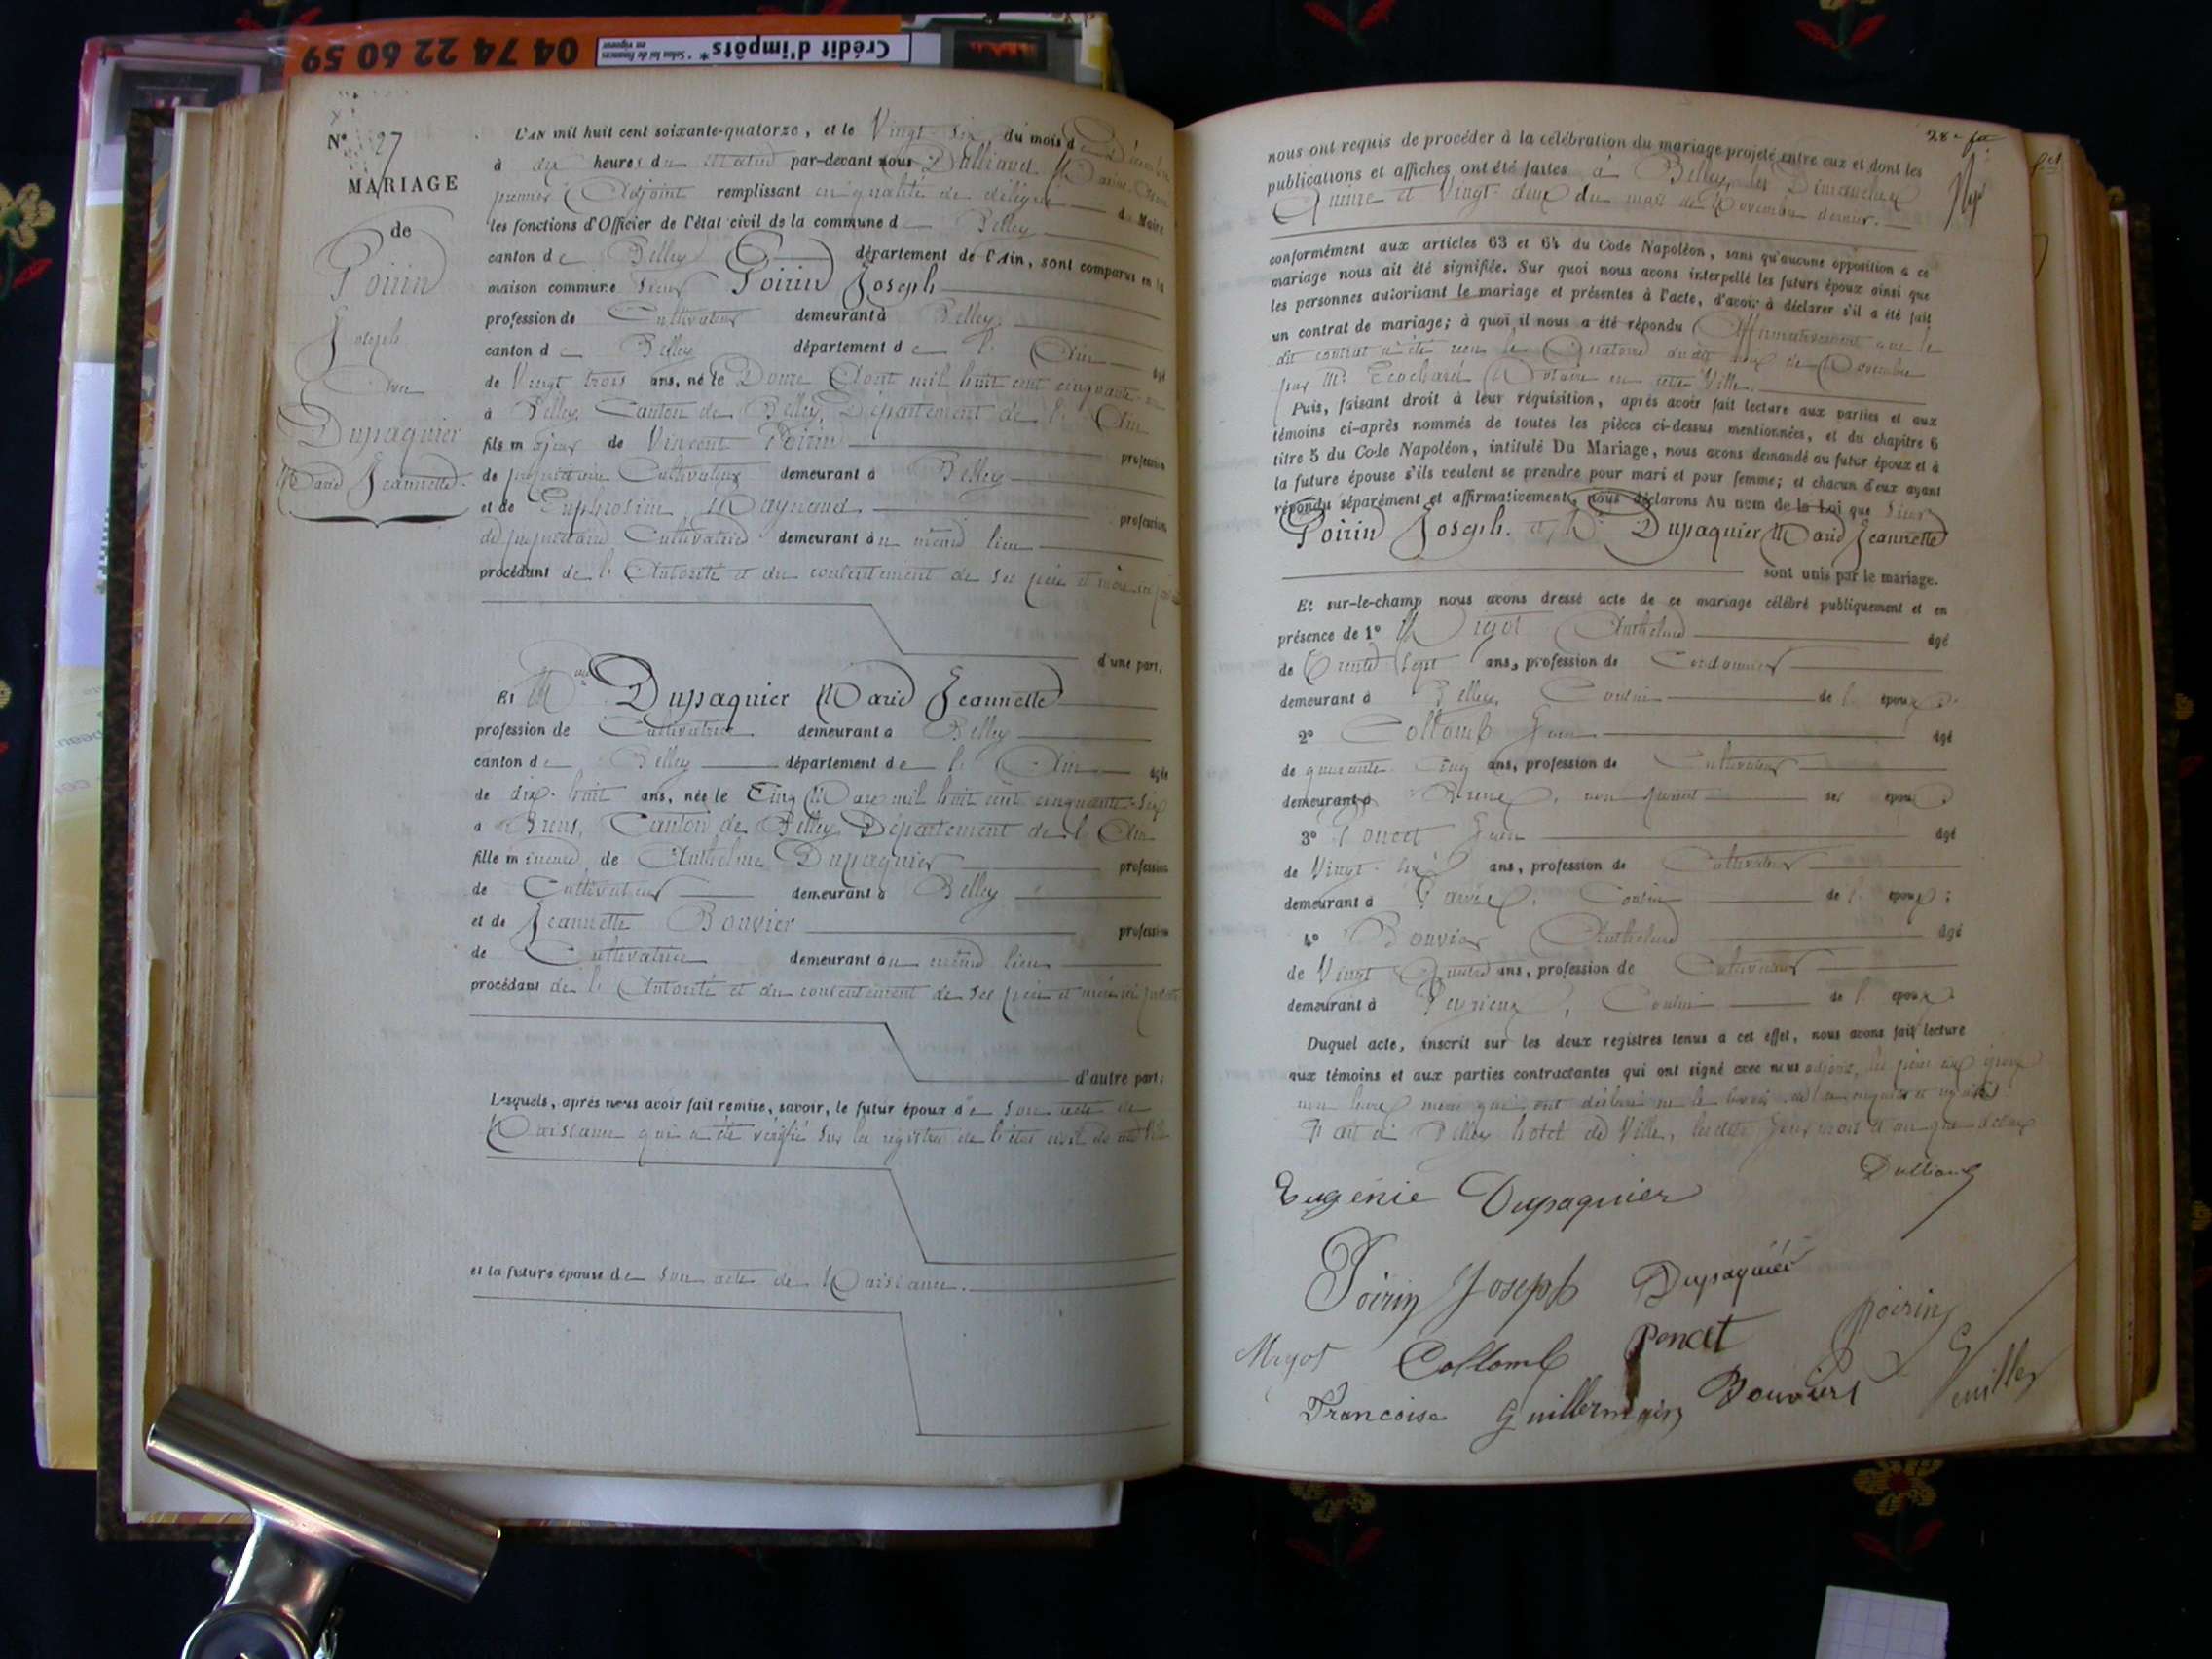 04 74 22 60 59
Crédit d'impôts*
* Selon loi de finances en vigueur
N° 27
MARIAGE
de
Poirin
Joseph
Avec
Dupaquier
Marie Jeannette.
L'AN mil huit cent soixante-quatorze, et le Vingt-Six du mois de
à dix heures du Matin par-devant nous Dulliand
premier Adjoint remplissant en qualité de délégué du Maire
les fonctions d'Officier de l'état civil de la commune de Belley
canton de Belley département de l'Ain, sont comparus en la
maison commune Sieur Poirin Joseph
profession de Cultivateur demeurant à Belley
canton de Belley département de l'Ain âgé
de Vingt trois ans, né le Douze Août mil huit cent cinquante
à Belley, Canton de Belley, Département de l'Ain
fils majeur de Vincent Poirin profession
de propriétaire Cultivateur demeurant à Belley
et de Euphrosine Maynard profession
de propriétaire Cultivatrice demeurant au même lieu
procédant de l'Autorité et du consentement de ses père et mère
d'une part;
Et Mlle Dupaquier Marie Jeannette
profession de Cultivatrice demeurant à Belley
canton de Belley département de l'Ain âgée
de dix-huit ans, née le Cinq Mars mil huit cent cinquante-six
à Brens, Canton de Belley, Département de l'Ain
fille mineure de Anthelme Dupaquier profession
de Cultivateur demeurant à Belley
et de Jeannette Bouvier profession
de Cultivatrice demeurant au même lieu
procédant de l'Autorité et du consentement de ses père et mère
d'autre part;
Lesquels, après nous avoir fait remise, savoir, le futur époux de Son acte de
Naissance qui a été vérifié sur les registres de l'état civil de
et la future épouse de Son acte de Naissance.
28e
nous ont requis de procéder à la célébration du mariage projeté entre eux et dont les
publications et affiches ont été faites à Belley, les Dimanches
Quinze et Vingt-deux du mois de Novembre dernier.
conformément aux articles 63 et 64 du Code Napoléon, sans qu'aucune opposition à ce
mariage nous ait été signifiée. Sur quoi nous avons interpellé les futurs époux ainsi que
les personnes autorisant le mariage et présentes à l'acte, d'avoir à déclarer s'il a été fait
un contrat de mariage; à quoi il nous a été répondu Affirmativement que le
dit contrat a été reçu le Quatorze dudit mois de Novembre
par Me Notaire en cette Ville.
Puis, faisant droit à leur réquisition, après avoir fait lecture aux parties et aux
témoins ci-après nommés de toutes les pièces ci-dessus mentionnées, et du chapitre 6
titre 5 du Code Napoléon, intitulé Du Mariage, nous avons demandé au futur époux et à
la future épouse s'ils veulent se prendre pour mari et pour femme; et chacun d'eux ayant
répondu séparément et affirmativement, nous déclarons Au nom de la Loi que Sieur
Poirin Joseph. et Dupaquier Marie Jeannette
sont unis par le mariage.
Et sur-le-champ nous avons dressé acte de ce mariage célébré publiquement et en
présence de 1° Migot Anthelme âgé
de Trente Sept ans, profession de Cordonnier
demeurant à Belley, Cousin de l'épouse.
2° Collomb Jean âgé
de quarante Cinq ans, profession de Cultivateur
demeurant à Brens, non parent des époux
3° Poncet Jean âgé
de Vingt-six ans, profession de Cultivateur
demeurant à Cousin de l'époux;
4° Bouvier Anthelme âgé
de Vingt Quatre ans, profession de Cultivateur
demeurant à Peyrieux, Cousin de l'épouse.
Duquel acte, inscrit sur les deux registres tenus à cet effet, nous avons fait lecture
aux témoins et aux parties contractantes qui ont signé avec nous adjoint, les pères
non leurs mères qui ont déclaré ne le savoir de ce requises
Fait à Belley hotel de Ville, lesdits jour mois et an que dessus
Dulliand
Eugénie Dupaquier
Poirin Joseph Dupaquier
Poirin
Migot Collomb Poncet
Francoise Guillermain Bouvier